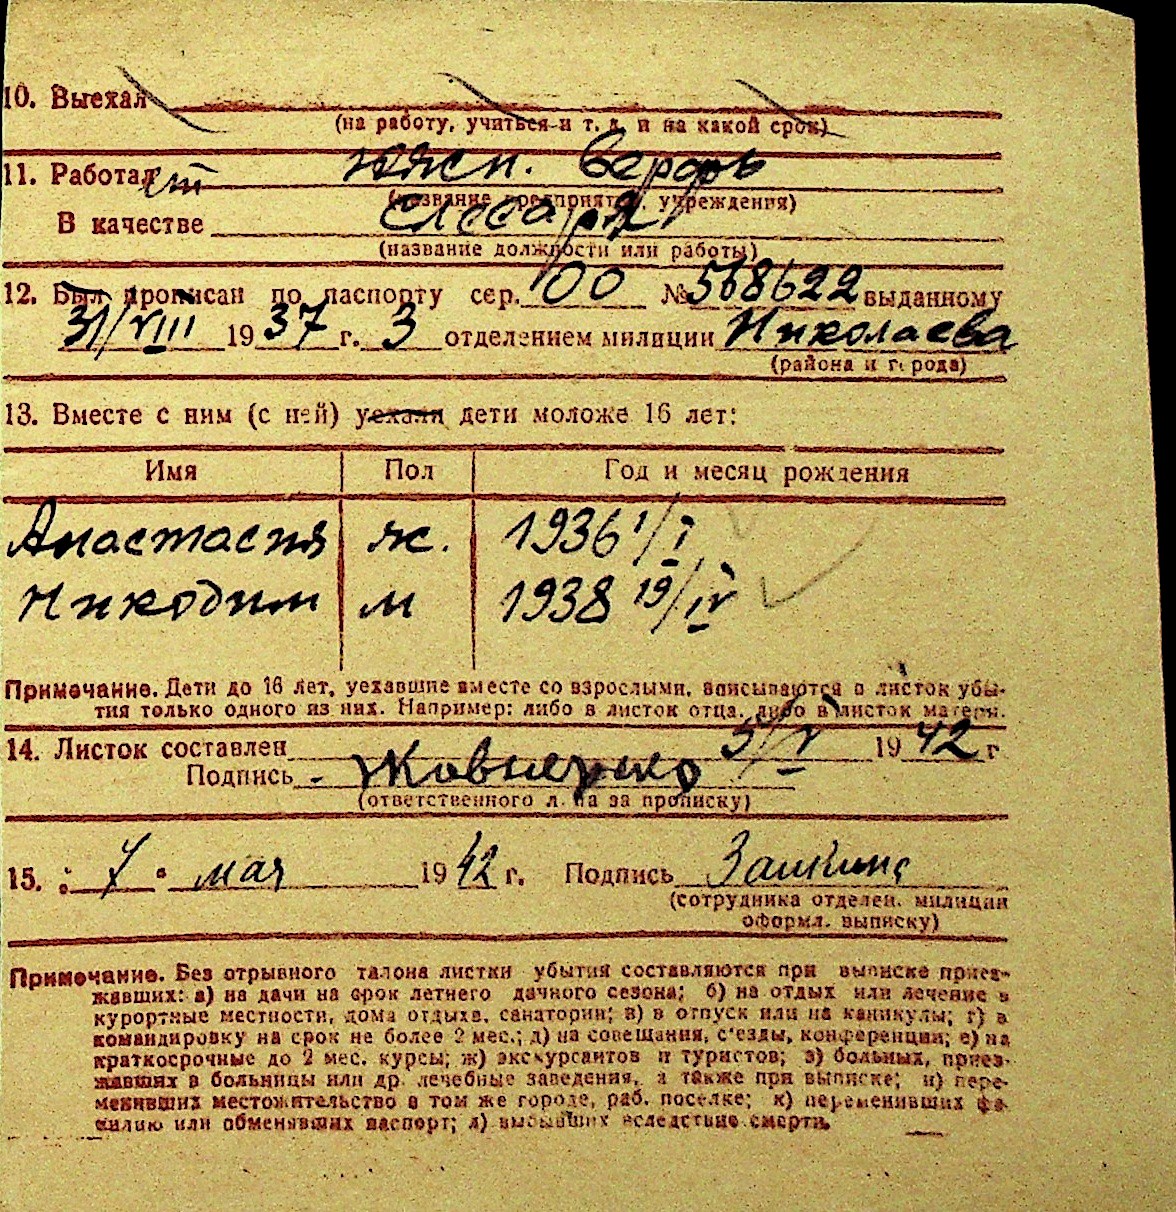 10. Выехал
(на работу, учиться и т. д. и на какой срок)
11. Работает верфь
(название предприятия, учреждения)
В качестве слесаря
(название должности или работы)
12. Был прописан по паспорту сер. 00 № 568622 выданному
31/VIII 1937 г. 3 отделением милиции Николаева
(района и города)
13. Вместе с ним (с ней) уехали дети моложе 16 лет:
Имя Пол Год и месяц рождения
Анастасия ж. 1936 1/I
Никодим м 1938 19/IV
Примечание. Дети до 16 лет, уехавшие вместе со взрослыми, вписываются в листок убы-
тия только одного из них. Например: либо в листок отца, либо в листок матери.
14. Листок составлен 5/V 1942 г
Подпись
(ответственного лица за прописку)
15. "7" мая 1942 г. Подпись
(сотрудника отделен. милиции
оформл. выписку)
Примечание. Без отрывного талона листки убытия составляются при выписке приез-
жавших: а) на дачи на срок летнего дачного сезона; б) на отдых или лечение в
курортные местности, дома отдыха, санатории; в) в отпуск или на каникулы; г) в
командировку на срок не более 2 мес.; д) на совещания, с'езды, конференции; е) на
краткосрочные до 2 мес. курсы; ж) экскурсантов и туристов; з) больных, приез-
жавших в больницы или др. лечебные заведения, а также при выписке; и) пере-
менивших местожительство в том же городе, раб. поселке; к) переменивших фа-
милию или обменявших паспорт; л) выбывших вследствие смерти.